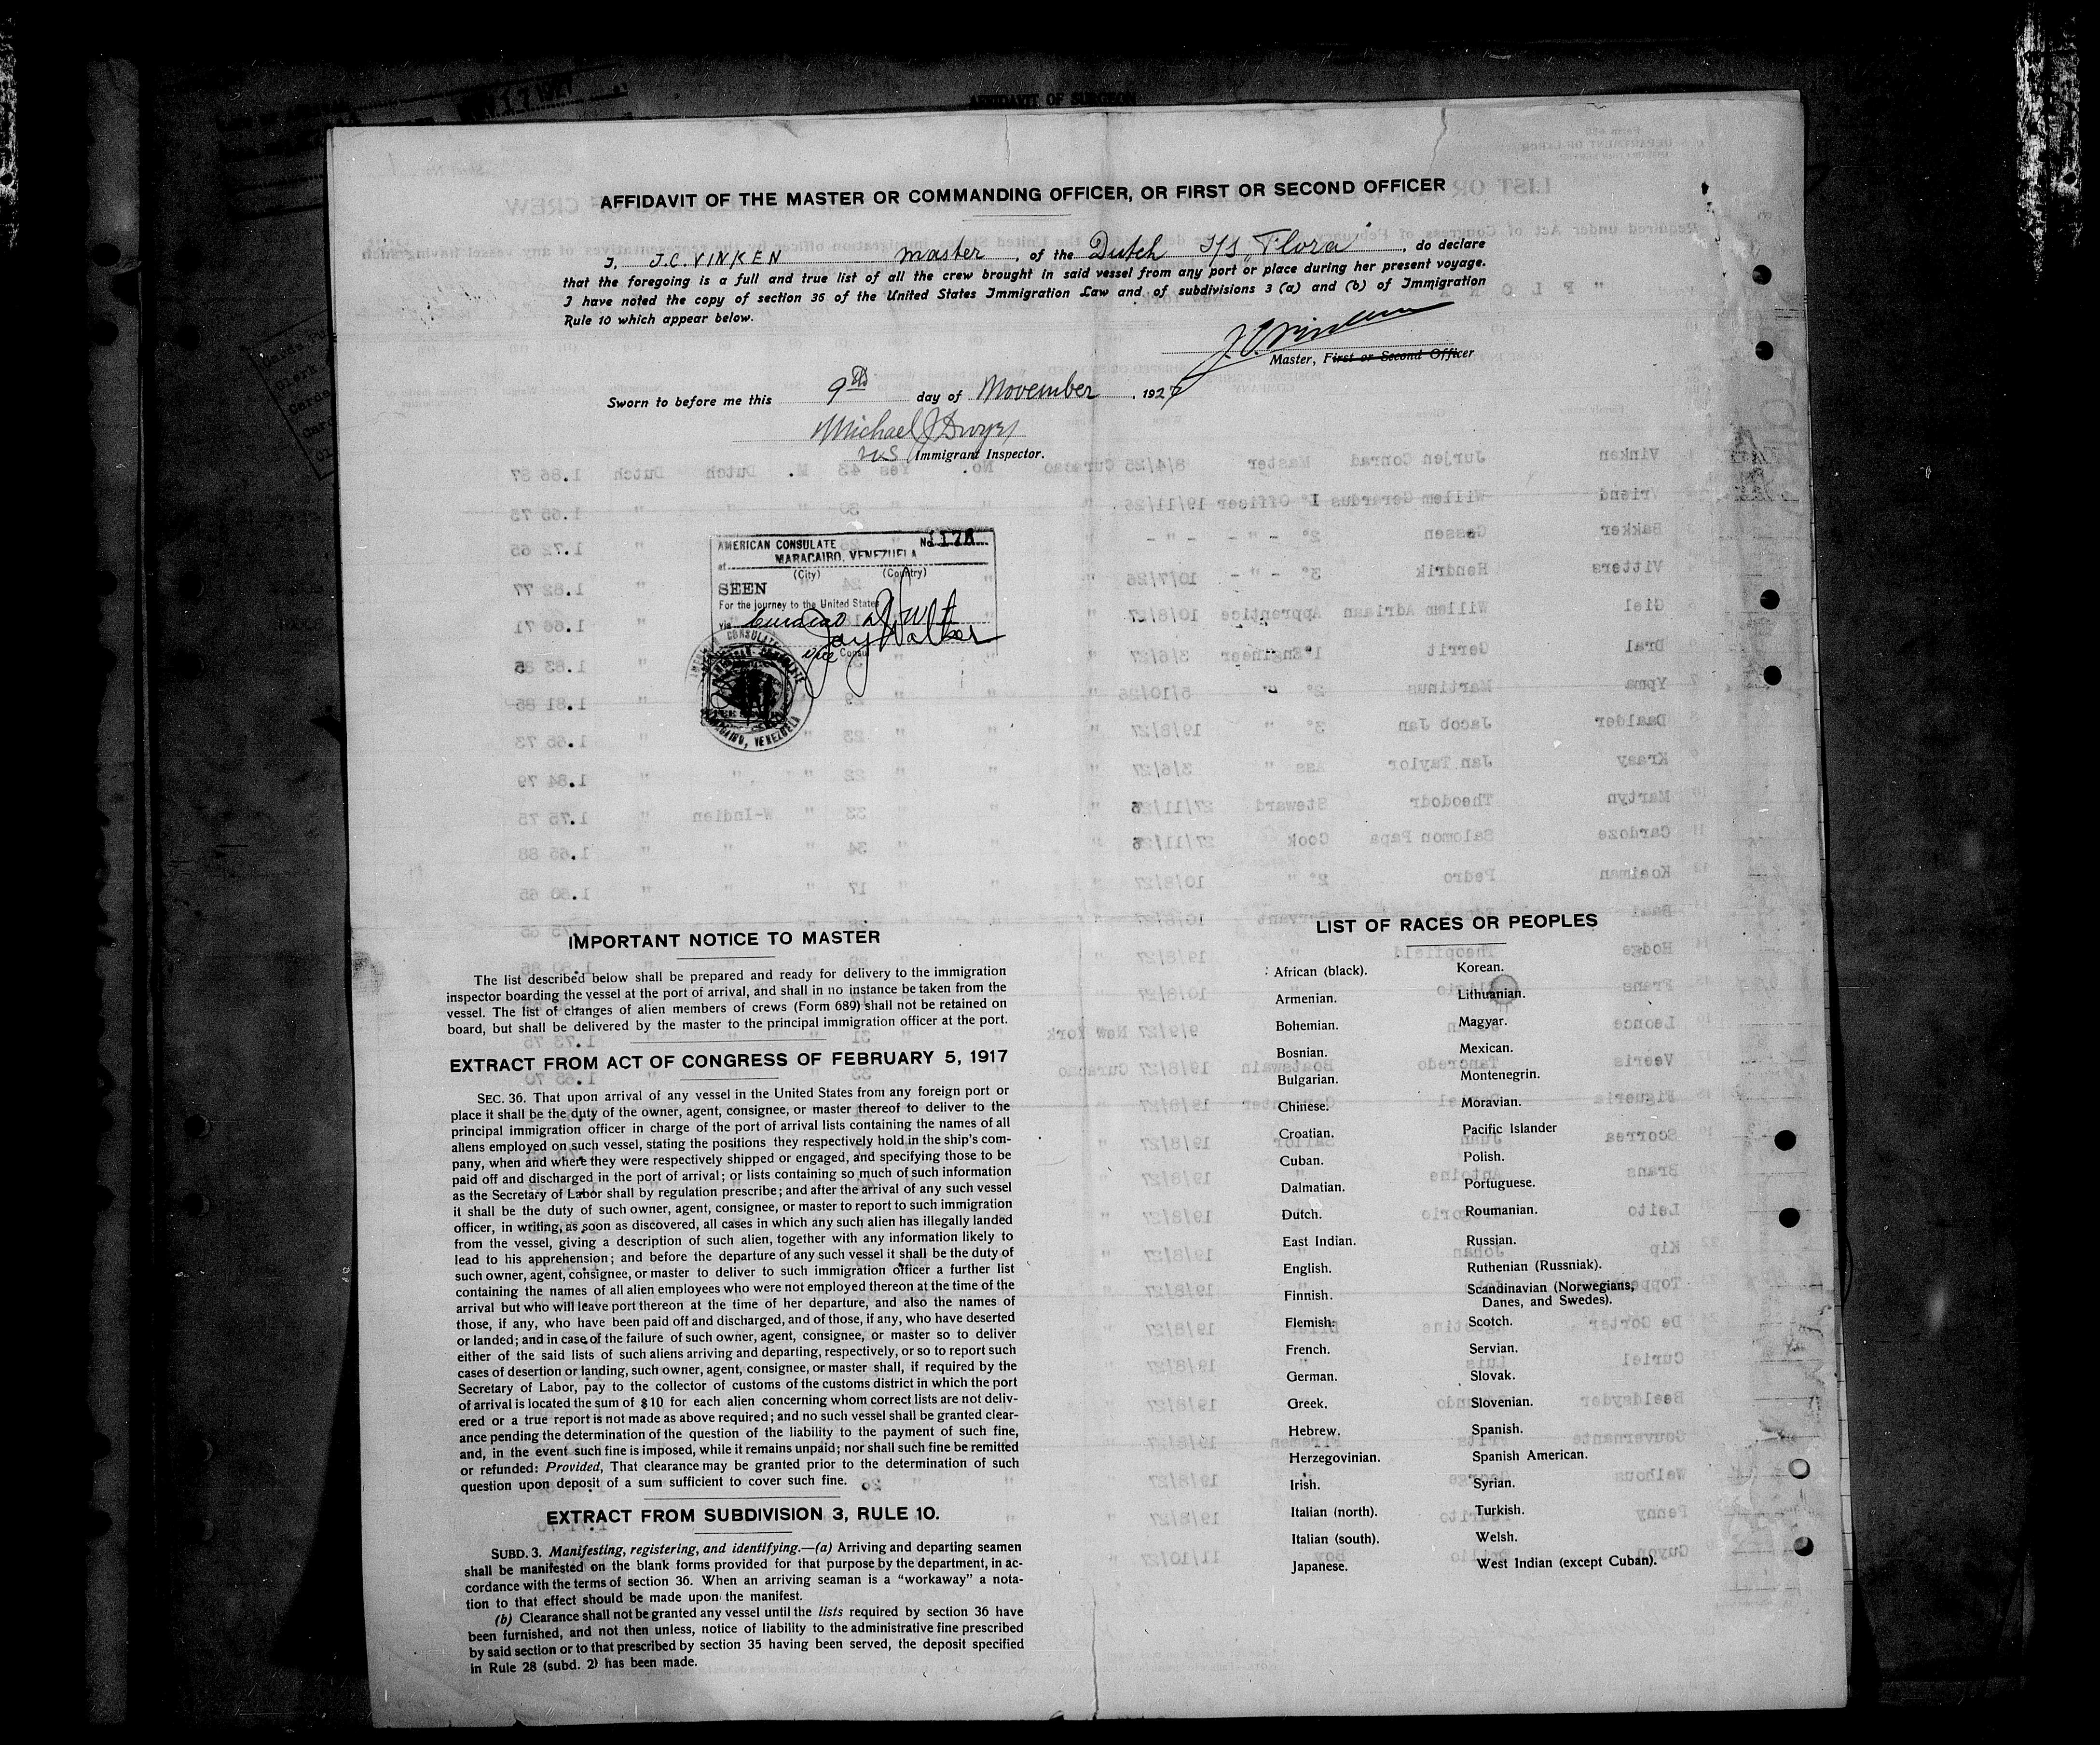 AFFIDAVIT OF SURGEON
AFFIDAVIT OF THE MASTER OR COMMANDING OFFICER, OR FIRST OR SECOND OFFICER
I, J.C. VINKEN master, of the Dutch S/S "Flora", do declare
that the foregoing is a full and true list of all the crew brought in said vessel from any port or place during her present voyage.
I have noted the copy of section 36 of the United States Immigration Law and of subdivisions 3 (a) and (b) of Immigration
Rule 10 which appear below.
Master, First or Second Officer
Sworn to before me this 9th day of November, 1927
Michael J Dwyer
US Immigrant Inspector.
AMERICAN CONSULATE No.
at MARACAIBO, VENEZUELA
(City) (Country)
SEEN
For the journey to the United States
via Curacao
Jay Walker
Vice Consul
MARACAIBO, VENEZUELA
IMPORTANT NOTICE TO MASTER
The list described below shall be prepared and ready for delivery to the immigration
inspector boarding the vessel at the port of arrival, and shall in no instance be taken from the
vessel. The list of changes of alien members of crews (Form 689) shall not be retained on
board, but shall be delivered by the master to the principal immigration officer at the port.
EXTRACT FROM ACT OF CONGRESS OF FEBRUARY 5, 1917
SEC. 36. That upon arrival of any vessel in the United States from any foreign port or
place it shall be the duty of the owner, agent, consignee, or master thereof to deliver to the
principal immigration officer in charge of the port of arrival lists containing the names of all
aliens employed on such vessel, stating the positions they respectively hold in the ship's com-
pany, when and where they were respectively shipped or engaged, and specifying those to be
paid off and discharged in the port of arrival; or lists containing so much of such information
as the Secretary of Labor shall by regulation prescribe; and after the arrival of any such vessel
it shall be the duty of such owner, agent, consignee, or master to report to such immigration
officer, in writing, as soon as discovered, all cases in which any such alien has illegally landed
from the vessel, giving a description of such alien, together with any information likely to
lead to his apprehension; and before the departure of any such vessel it shall be the duty of
such owner, agent, consignee, or master to deliver to such immigration officer a further list
containing the names of all alien employees who were not employed thereon at the time of the
arrival but who will leave port thereon at the time of her departure, and also the names of
those, if any, who have been paid off and discharged, and of those, if any, who have deserted
or landed; and in case of the failure of such owner, agent, consignee, or master so to deliver
either of the said lists of such aliens arriving and departing, respectively, or so to report such
cases of desertion or landing, such owner, agent, consignee, or master shall, if required by the
Secretary of Labor, pay to the collector of customs of the customs district in which the port
of arrival is located the sum of $10 for each alien concerning whom correct lists are not deliv-
ered or a true report is not made as above required; and no such vessel shall be granted clear-
ance pending the determination of the question of the liability to the payment of such fine,
and, in the event such fine is imposed, while it remains unpaid; nor shall such fine be remitted
or refunded: Provided, That clearance may be granted prior to the determination of such
question upon deposit of a sum sufficient to cover such fine.
EXTRACT FROM SUBDIVISION 3, RULE 10.
SUBD. 3. Manifesting, registering, and identifying.—(a) Arriving and departing seamen
shall be manifested on the blank forms provided for that purpose by the department, in ac-
cordance with the terms of section 36. When an arriving seaman is a "workaway" a nota-
tion to that effect should be made upon the manifest.
(b) Clearance shall not be granted any vessel until the lists required by section 36 have
been furnished, and not then unless, notice of liability to the administrative fine prescribed
by said section or to that prescribed by section 35 having been served, the deposit specified
in Rule 28 (subd. 2) has been made.
LIST OF RACES OR PEOPLES
African (black).
Armenian.
Bohemian.
Bosnian.
Bulgarian.
Chinese.
Croatian.
Cuban.
Dalmatian.
Dutch.
East Indian.
English.
Finnish.
Flemish.
French.
German.
Greek.
Hebrew.
Herzegovinian.
Irish.
Italian (north).
Italian (south).
Japanese.
Korean.
Lithuanian.
Magyar.
Mexican.
Montenegrin.
Moravian.
Pacific Islander
Polish.
Portuguese.
Roumanian.
Russian.
Ruthenian (Russniak).
Scandinavian (Norwegians,
Danes, and Swedes).
Scotch.
Servian.
Slovak.
Slovenian.
Spanish.
Spanish American.
Syrian.
Turkish.
Welsh.
West Indian (except Cuban).